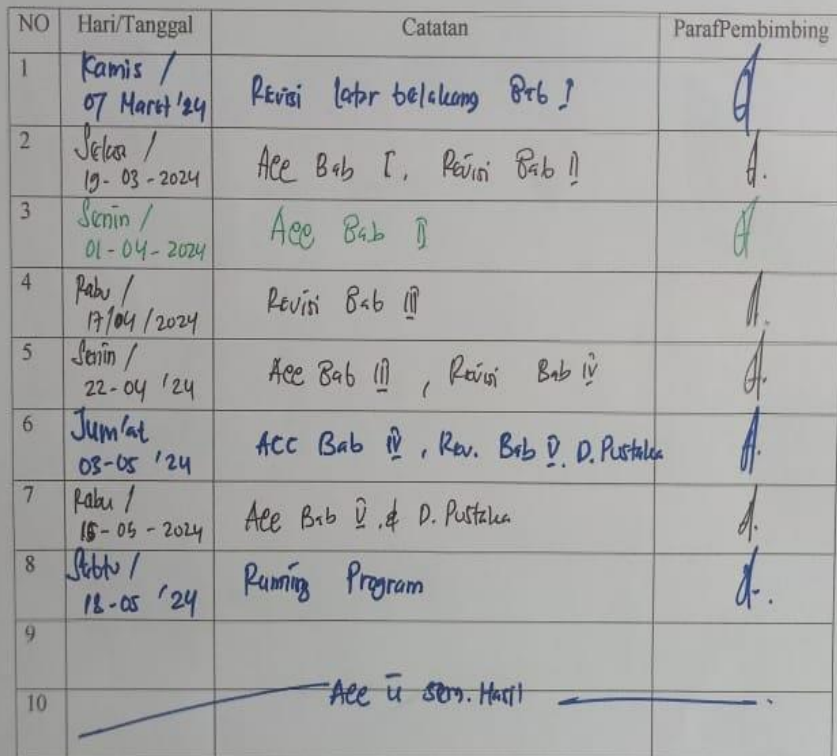 NO Hari/Tanggal Catatan ParafPembimbing
1 Kamis /
07 Maret '24 Revisi latar belakang Bab I
2 Selasa /
19-03-2024 Acc Bab I, Revisi Bab II
3 Senin /
01-04-2024 Acc Bab II
4 Rabu /
17/04/2024 Revisi Bab III
5 Senin /
22-04 '24 Acc Bab III, Revisi Bab IV
6 Jum'at
03-05 '24 Acc Bab IV, Rev. Bab V. D. Pustaka
7 Rabu /
15-05-2024 Acc Bab V & D. Pustaka
8 Sabtu /
18-05 '24 Running Program
9
Acc u sem. Hasil
10